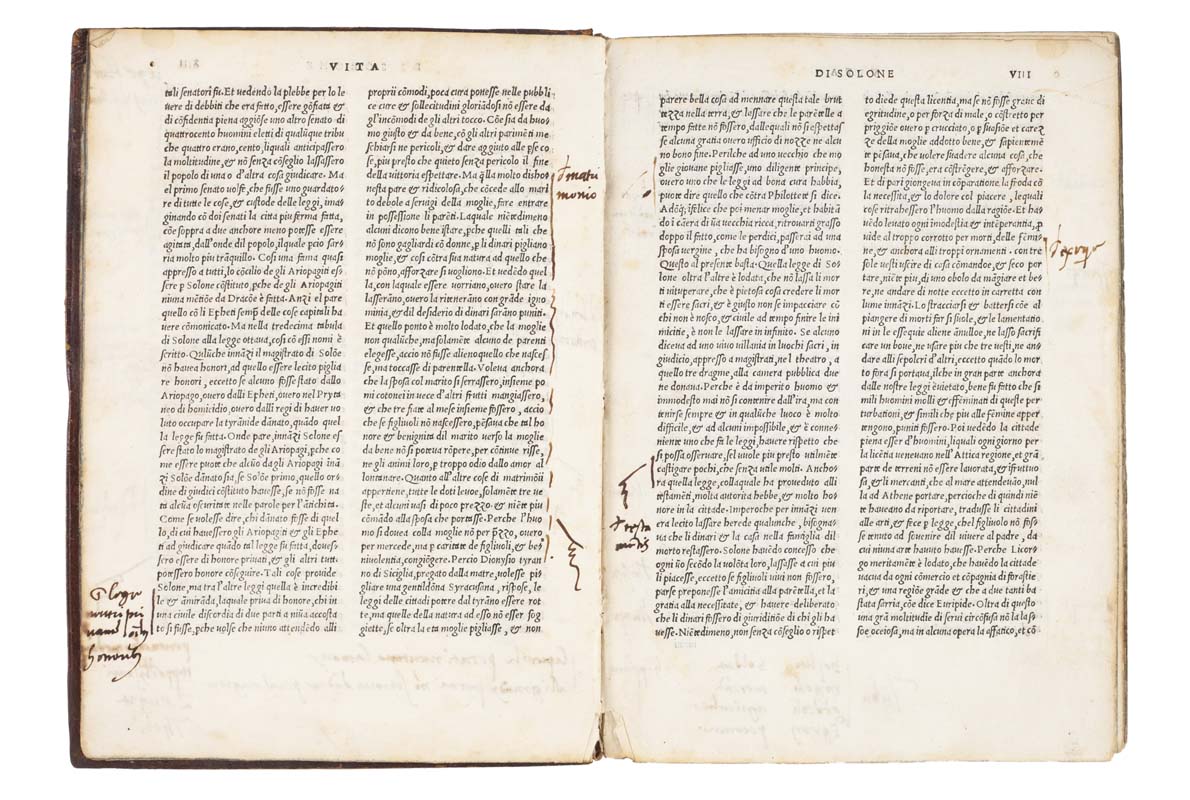 VITA
tali senatori fu. Et vedendo la plebbe per lo le
uere di debbiti che era fatto, essere gõfiata &
di cõfidentia piena aggiõse uno altro senato di
quattrocento huomini eletti di qualũque tribu
che quattro erano, cento, liquali anticipassero
la moltitudine, & nõ senza cõseglio lassassero
il popolo di una o d'altra cosa giudicare. Ma
el primo senato uolse, che fusse uno guardato-
re di tutte le cose, & custode delle leggi, ima-
ginando cõ doi senati la citta piu ferma fatta,
cõe soppra a due anchore meno potesse essere
agitata, dall'onde dil popolo, il quale pcio sar-
ria molto piu trãquillo. Cosi una fama quasi
appresso a tutti, lo cõcilio de gli Ariopagiti es-
sere p Solone cõstituto, pche de gli Ariopagiti
niuna mẽtiõe da Dracõe è fatta. Anzi el pare
quello cõ li Epheti semp̃ delle cose capitali ha
uere cõmonicato. Ma nella tredecima tabula
di Solone alla legge ottaua, cosi cõ essi nomi è
scritto. Qulũche innãzi il magistrato di Solõe
nõ hauea honori, ad quello essere lecito piglia
re honori, eccetto se alcuno fosse stato dallo
Ariopago, ouero dalli Epheti, ouero nel Pryta
neo di homicidio, ouero dalli regi di hauer uo
luto occupare la tyrãnide dãnato, quãdo quel
la legge fu fatta. Onde pare, innãzi Solone es
sere stato lo magistrato de gli Ariopagi, pche co
me essere puote che alcũo dagli Ariopagi inã
zi Solõe dãnato sia, se Solõe primo, quello or=
dine di giudici cõstituto hauesse, se nõ fosse na
ta alcũa oscuritate nelle parole per l'ãtichita.
Come se uolesse dire, chi dãnato fosse di quel
lo, di cui hauessero gli Ariopagiti & gli Ephe
ti ad giudicare quãdo tal legge fu fatta, douess-
sero essere di honore priuati, & gli altri tutti
potessero honore cõseguire. Tali cose prouide
Solone, ma tra l'altre leggi quella è incredibi
le & amirãda, laquale priua di honore, chi in
una ciuile discordia di due parti a niũa accosta
to si fusse, pche uolse che niuno attendẽdo alli
proprii cõmodi, poca cura ponesse nelle pubbli
ce cure & sollecitudini gloriãdosi nõ essere da
gl'incõmodi de gli altri tocco. Cõe sia da huo-
mo giusto & da bene, cõ gli altri parimẽti me
schiarsi ne pericoli, & dare aggiuto alle psẽ co
se, piu presto che quieto senza pericolo il fine
della uittoria espettare. Ma q̃lla molto dishō
nesta pare & ridicolosa, che cõcede allo mari
to debole a seruigi della moglie, fare entrar
in possessione li parẽti. Laquale niẽtedimeno
alcuni dicono bene istare, pche quelli tali che
nõ sono gagliardi cõ donne, p li dinari pigliano
moglie, & cosi cõtra sua natura ad quello che
nõ põno, afforzare si uogliono. Et uedẽdo quel
la, con laquale essere uorriano, ouero stare la
lasserãno, ouero la riteneranno con grãde igno
minia, & dil desiderio di dinari sarãno puniti.
Et quello ponto è molto lodato, che la moglie
non qualũche, ma solamẽte alcuno de parenti
elegesse, accio nõ fusse alieno quello che nascess-
se, ma toccasse di parentella. Voleua anchora
che la sposa col marito si serrassero, insieme po
mi cotonei in uece d'altri frutti mangiassero,
& che tre fiate al mese insieme fossero, accio
che se figliuoli nõ nascessero, pẽsaua che tal ho
nore & benignita dil marito uerso la moglie
da bene, nõ si potea rõpere, per cõtinue risse,
ne gli animi loro, p troppo odio dallo amor al
lontanare. Quanto all'altre cose di matrimõii
appertiene, tutte le doti leuoe, solamẽte tre ue
ste, et alcuni uasi di poco prezzo & niẽte piu
cõmãdo alla sposa che portasse. Perche l'huo
mo si douea colla moglie nõ per p̃zzo, ouero
per mercede, ma p caritate de figliuoli, & be-
niuolentia, congiõgere. Percio Dionysio tyran
no di Siciglia, pregato dalla matre, uolesse pi-
gliare una gentildõna Syracusana, rispose, le
leggi delle cittadi potere dal tyrãno essere rot
te, ma quelle della natura ad esso nõ esser sog
giette, se oltra la eta moglie pigliasse, & non
matri
monio
honoribus
DI SOLONE VIII
parere bella cosa ad mennare questa tale brut
tezza nella terra, & lassare che le parẽtelle a
tempo fatte nõ fossero, dallequali nõ si espettass
se alcuna gratia ouero ufficio di nozze ne alcu
no bono fine. Perilche ad uno uecchio che mo
glie giouane pigliasse, uno diligente principe,
ouero uno che le leggi ad bona cura habbia,
puote dire quello che cõtra Philottete si dice.
Adõq; ĩfelice che poi menar moglie, et habitã
do ĩ cãera di ũa vecchia ricca, ritrouarti grasso
doppo il fatto, come le perdici, passerai ad una
sposa uergine, che ha bisogno d'uno huomo.
Questo al presente basta. Quella legge di So-
lone oltra l'altre è lodata, che nõ lassa li mor
ti uituperare, che è pietosa cosa credere li mor
ti essere sacri, & è giusto non se impacciare cõ
chi non è nosco, & ciuile ad tempo finire le ini
micitie, è non le lassare in infinito. Se alcuno
diceua ad uno uiuo uillania in luochi sacri, in
giudicio, appresso a magistrati, nel theatro, a
quello tre dragme, alla camera pubblica due
ne donaua. Perche è da imperito huomo &
immodesto mai nõ si contenire dall'ira, ma con
tenirse sempre & in qualũche luoco è molto
difficile, & ad alcuni impossibile, & è conue-
niente uno che fa le leggi, hauere rispetto che
si possa osseruare, sel uuole piu presto utilmẽte
castigare pochi, che senza utile molti. Ancho-
ra quella legge, collaquale ha proueduto alli
testamẽti, molta autorita hebbe, & molto ho-
nore in la cittade. Imperoche per innãzi uen
era lecito lassare herede qualunche, bisogna-
ua che li dinari & la casa nella famiglia dil
morto restassero. Solone hauẽdo concesso che
ogni ũo secõdo la volõta loro, lassasse a cui piu
li piacesse, eccetto se figliuoli uiui non fossero,
parse preponesse l'amicitia alla parẽtella, et la
gratia alla necessitate, & hauere deliberato
che li dinari fossero di giuriditiõe di chi gli ha
uesse. Niẽtedimeno, non senza cõseglio o rispet
to diede questa licentia, ma se nõ fosse graue di
egritudine, o per forza di male, o cõstretto per
priggiõe ouero p crucciato, o p suasiõe et carez
ze della moglie addotto bene, & sapientemẽ
te pẽsaua, che uolere suadere alcuna cosa, che
honesta nõ fosse, era cõstrõgere, & afforzare.
Et di par giongeua in cõparatione la froda cõ
la necessità, & lo dolore col piacere, lequali
cose ritrahessero l'huomo dalla ragiõe. Et ha-
uẽdo leuato ogni ĩmodestia & ĩntẽperantia, p
uide al troppo corrotto per morti, delle fẽmi-
ne, & anchora alli troppi ornamenti. con tre
sole uesti uscire di casa comandoe, & seco por
tare, niẽte piu, di uno obolo da mãgiare et be-
re, ne andare di notte eccetto in carretta con
lume innãzi. Lo stracciarsi & battersi cõe al
piangere di morti far si suole, & le lamentatio
ni in le essequie aliene ãnulloe, ne lasso sacrifi
care un boue, ne usare piu che tre uesti, ne an
dare alli sepolcri d'altri, eccetto quãdo lo mor
to fora si portaua, ilche in gran parte anchora
dalle nostre leggi è uietato, bene fu fatto che si
huomini molli & effẽminati di queste per
turbationi, & simili che piu alle fẽmine apper
tengono, puniti fossero. Poi uedẽdo la cittade
piena esser d'huomini, liquali ogni giorno per
la licẽtia ueneuano nell'Attica regiõe, et grã
parte de terreni nõ essere lauorata, & ĩfruttuo
sa, & li mercanti, che al mare attendeuão, nul
la ad Athene portare, percioche di quindi niẽ
te haueano da riportare, tradusse li cittadini
alle arti, & fece p legge, chel figliuolo nõ fos-
se tenuto ad souenire dil uiuere al padre, da
cui niuna arte hauuto hauesse. Perche Licor-
go meritamẽte è lodato, che hauẽdo la cittade
uacua da ogni cõmercio et cõpagnia di forastie
ri, et una regiõe grãde & che a due tanti ba
stata sarria, cõe dice Euripide. Oltra di questo
ha una grã moltitudine di serui circõfusa nõ la la so
soe oceiosa, ma in alcuna opera la affatico, et cõ